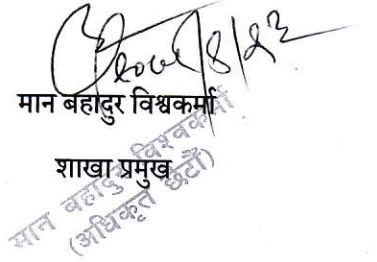 मान बहादुर विश्वकर्मा
शाखा प्रमुख
मान बहादुर विश्वकर्मा
(अधिकृत छैटौं)